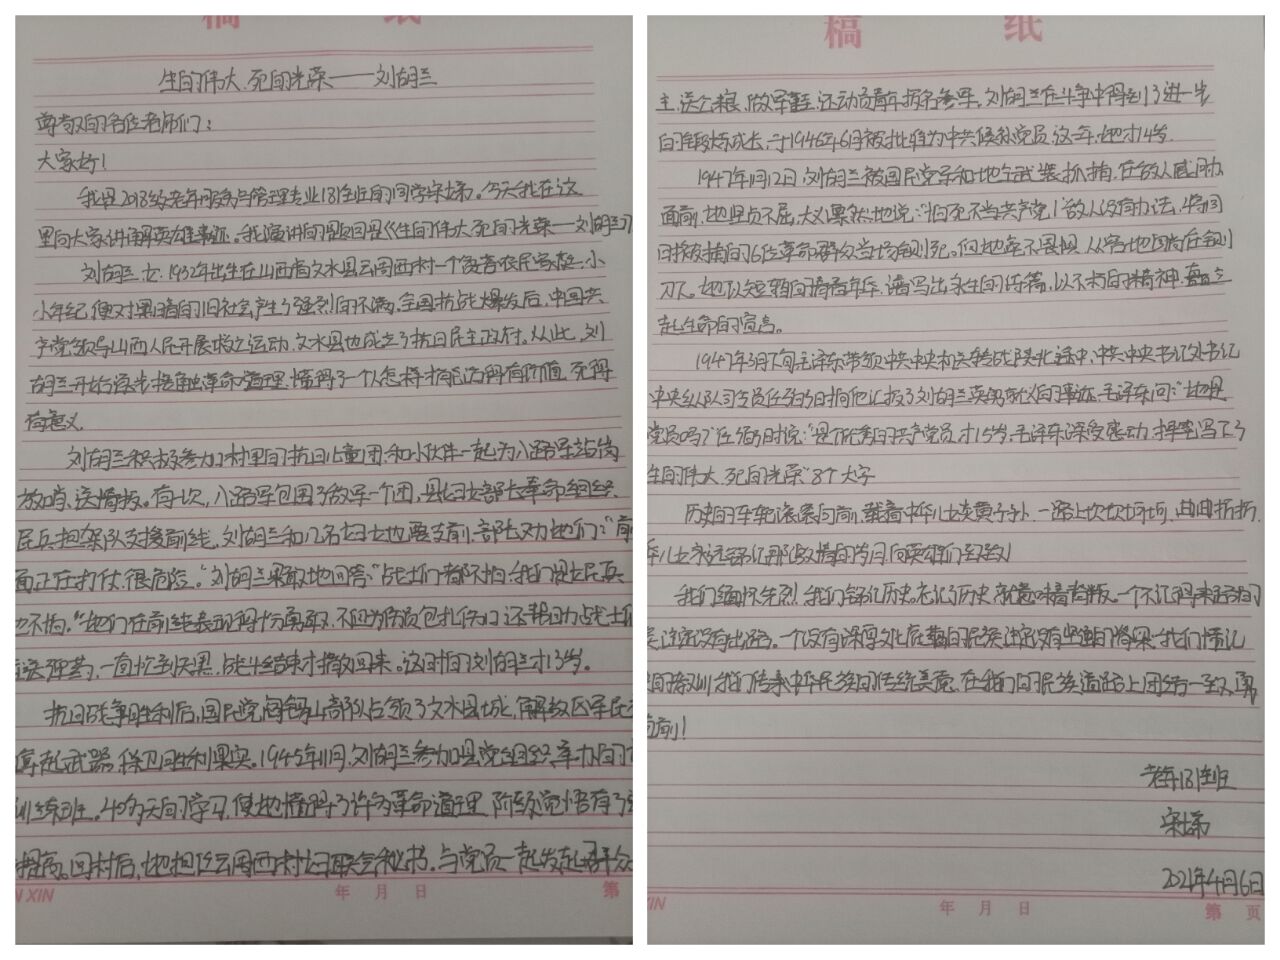 稿 纸
生的伟大、死的光荣——刘胡兰
尊敬的各位老师们：
大家好！
我是2018级老年服务与管理专业181班的同学宋梯。今天我在这
里向大家讲解英雄事迹。我演讲的题目是《生的伟大死的光荣—刘胡兰》
刘胡兰，女，1932年出生在山西省文水县云周西村一个贫苦农民家庭，小
小年纪便对黑暗的旧社会产生了强烈的不满。全国抗战爆发后，中国共
产党领导山西人民开展救亡运动，文水县也成立了抗日民主政府。从此，刘
胡兰开始逐步接触革命道理，懂得了一个人怎样才能活得有价值，死得
有意义
刘胡兰积极参加了村里的抗日儿童团，和小伙伴一起为八路军站岗
放哨、送情报。有一次，八路军包围了敌军一个团，县妇女部长革命组织
民兵担架队支援前线，刘胡兰和几名妇女也要支前，部长劝她们："前
面正在打仗，很危险。"刘胡兰果敢地回答："战士们都不怕，我们是女民兵
也不怕。"她们在前线表现得十分勇敢，不但为伤员包扎伤口，还帮助战士们
送弹药，一直忙到天黑，战斗结束才撤回来。这时的刘胡兰才13岁。
抗日战争胜利后，国民党阎锡山部队占领了文水县城，解放区军民
拿起武器，保卫胜利果实。1945年11月，刘胡兰参加县党组织举办的
训练班。40多天的学习，使她懂得了许多革命道理，阶级觉悟有了
提高。回村后，她担任云周西村妇联会秘书。与党员一起发起群众
N XIN 年 月 日 第
稿 纸
主、送公粮、做军鞋，还动员青年报名参军。刘胡兰在斗争中得到了进一步
的锻炼成长，于1946年6月被批准为中共候补党员，这一年，她才14岁
1947年1月12日刘胡兰被国民党军和地主武装抓捕，在敌人威胁
面前，她坚贞不屈，大义凛然地说："怕死不当共产党！"敌人没有办法，将同
时被捕的6位革命群众当场铡死。但她毫不畏惧，从容地躺在铡
刀下。她以短暂的青春年华，谱写出永生的诗篇，以不朽的精神，矗立
起生命的宣言。
1947年3月下旬毛泽东带领中共中央机关转战陕北途中，中共中央书记处书记
中央纵队司令员任弼时向他汇报了刘胡兰英勇就义的事迹，毛泽东问："她是
党员吗?"任弼时说："是个优秀的共产党员，才15岁，毛泽东深受感动，挥笔写下了
生的伟大、死的光荣"8个大字
历史的车轮滚滚向前，载着中华儿女炎黄子孙，一路上坎坎坷坷，曲曲折折，
华儿女永远铭记那激情的岁月，向英雄们致敬！
我们缅怀先烈，我们铭记历史，忘记历史就意味着背叛。一个不记得来路的
民族是没有出路。一个没有深厚文化底蕴的民族注定没有坚挺的脊梁，我们懂记
的深训，我们传承中华民族的传统美德，在我们的民族道路上团结一致、勇
向前！
老年181班
宋梯
2021年4月6日
XIN 年 月 日 第 页